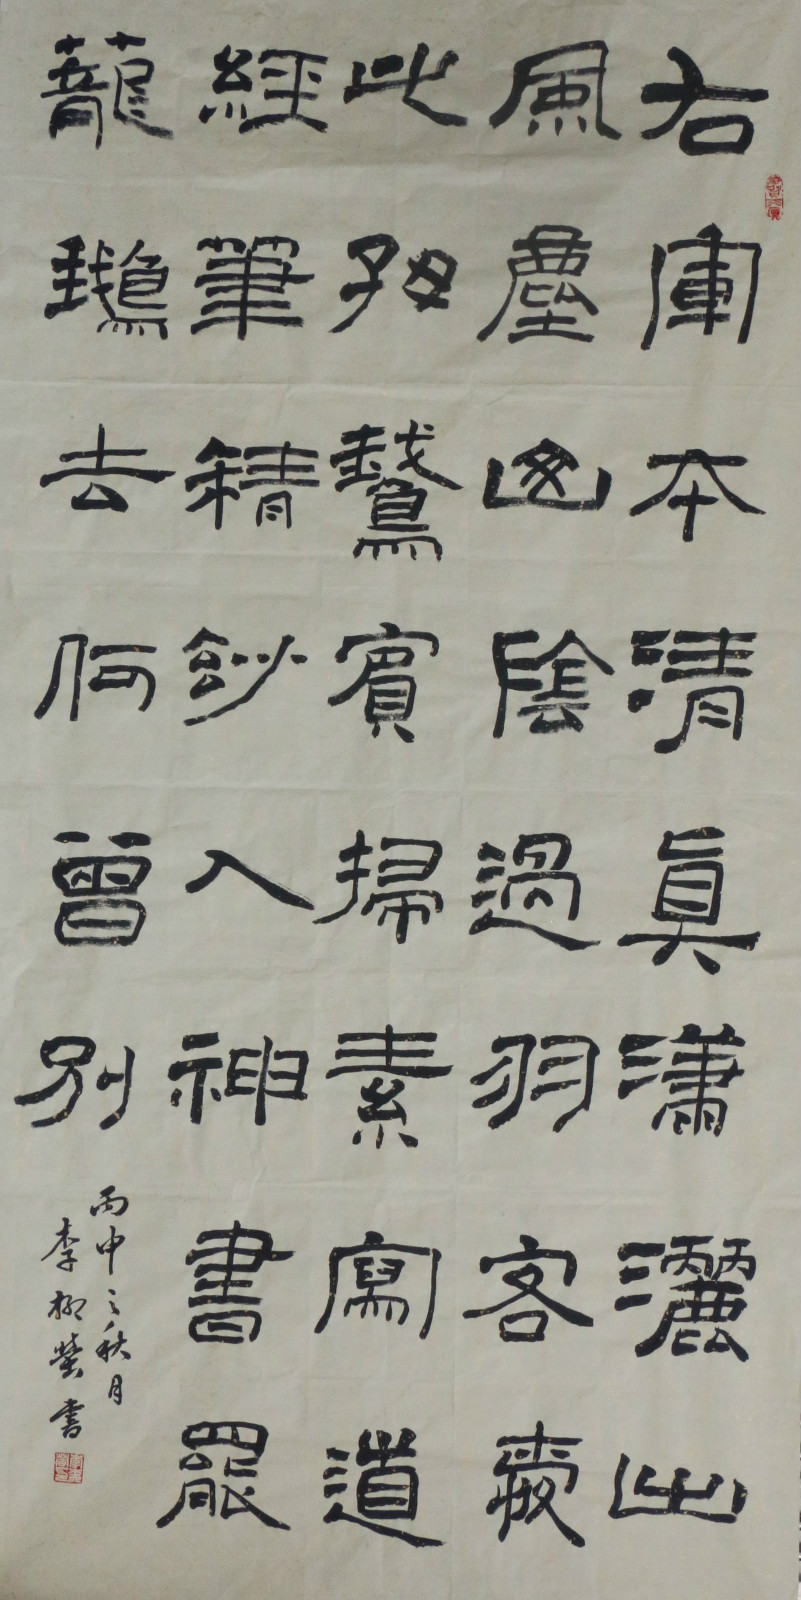 右軍本清眞瀟灑出
風塵山陰過羽客愛
此好鵞賓掃素寫道
經筆精玅入神書罷
蘢鵝去何曾別
丙申之秋月
李柳書